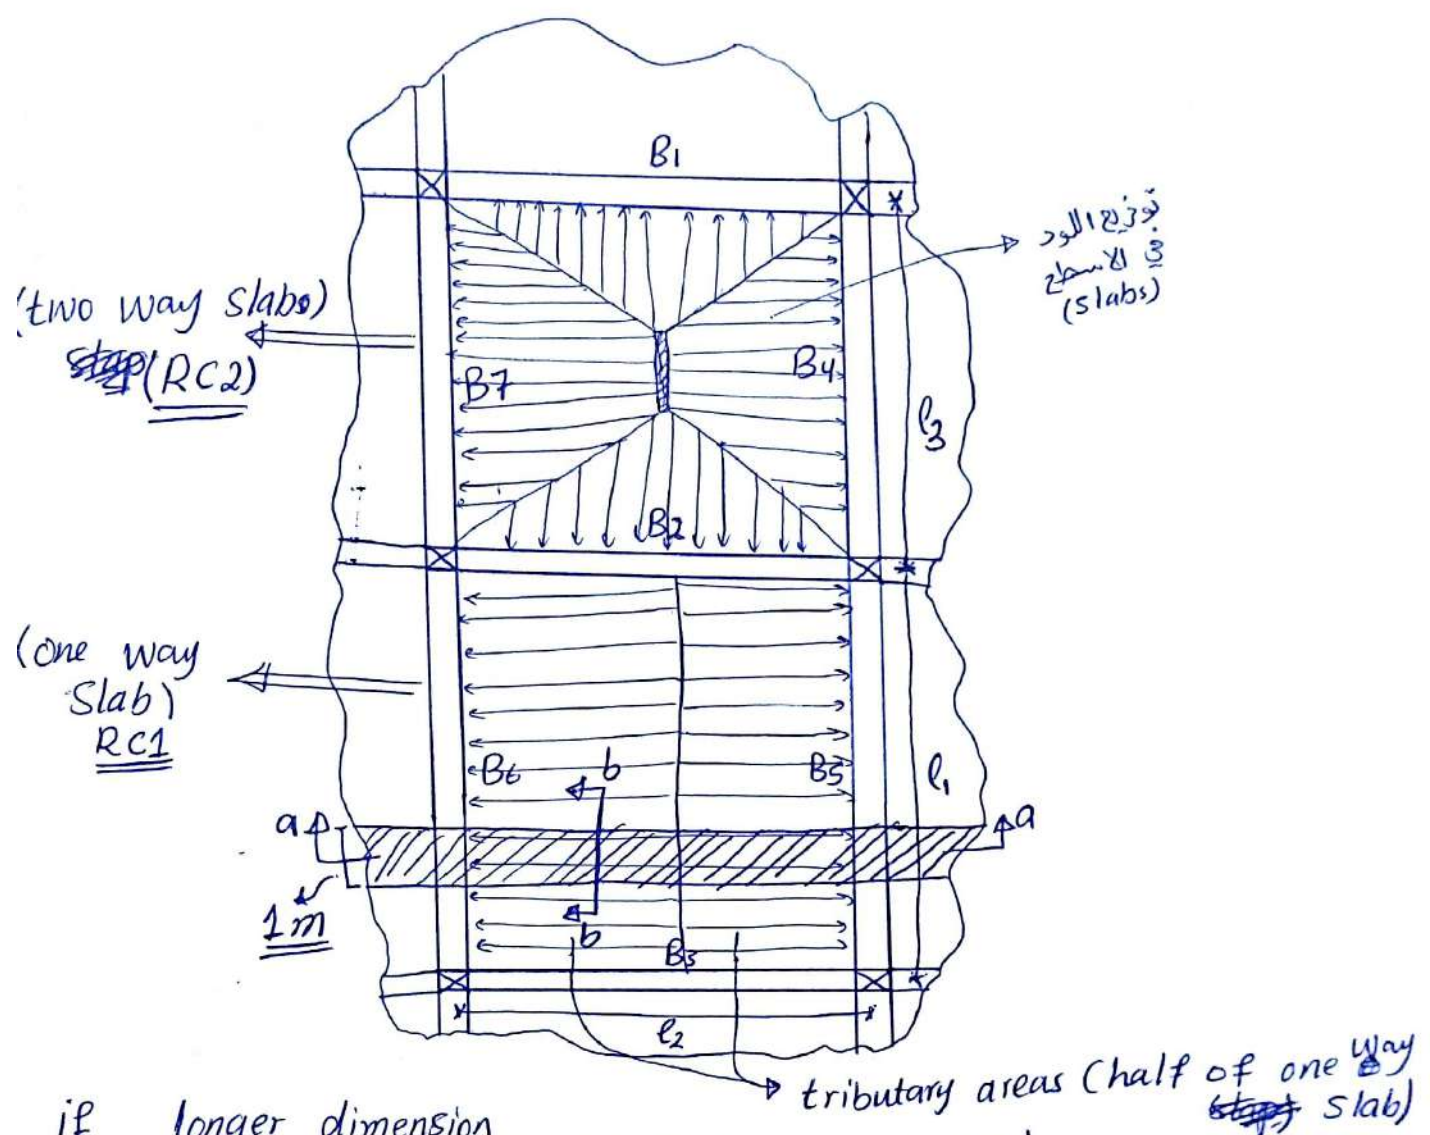 B1
توزيع اللود
في الاسطح
(slabs)
(two way slabs)
(RC2)
B7
B4
l3
B2
(one way
Slab)
RC1
B6
b
B5
l1
a
a
1m
b
B3
l2
tributary areas (half of one way
slab)
if longer dimension